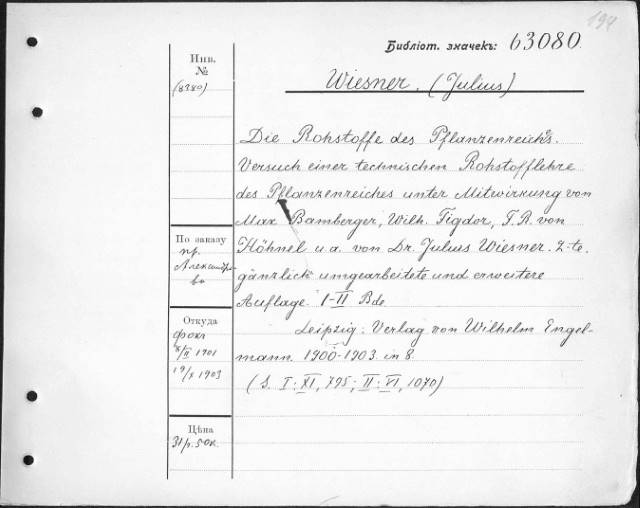 194
Библіот. значекъ: 63080.
Wiesner. (Julius)
Инв.
№
(8380)
Die Rohstoffe des Pflanzenreichs.
Versuch einer technischen Rohstofflehre
des Pflanzenreiches unter Mitwirkung von
Max Bamberger, Wilh. Figdor, F. R. von
Höhnel u.a. von Dr. Julius Wiesner. 2-te.
gänzlich umgearbeitete und erweitere
Auflage. I-II Bde
Leipzig: Verlag von Wilhelm Engel-
mann. 1900-1903. in 8.
(S. I: XI, 795; II: VI, 1070)
По заказу
пр.
Александро-
ва
Откуда
Фокъ
X/II 1901
19/X 1903
Цѣна
31 р. 50 к.